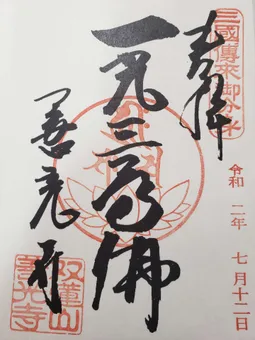 三國傳來御分身
奉拝
令和二年七月十二日
一光三尊佛
善光寺
双蓮山
善光寺